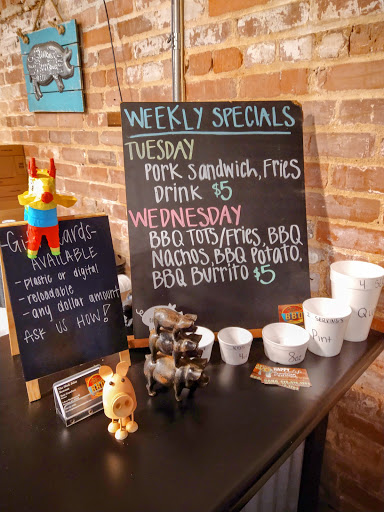 WEEKLY SPECIALS
TUESDAY
PORK SANDWICH, FRIES
DRINK $5
WEDNESDAY
BBQ TOTS/FRIES, BBQ
NACHOS, BBQ POTATO,
BBQ BURRITO $5
Cards-
AVAILABLE
- Plastic or digital
- reloadable
- any dollar amount
ASK US HOW!
BBQ
4
8oz
Pint
4
Qu
HAPPY